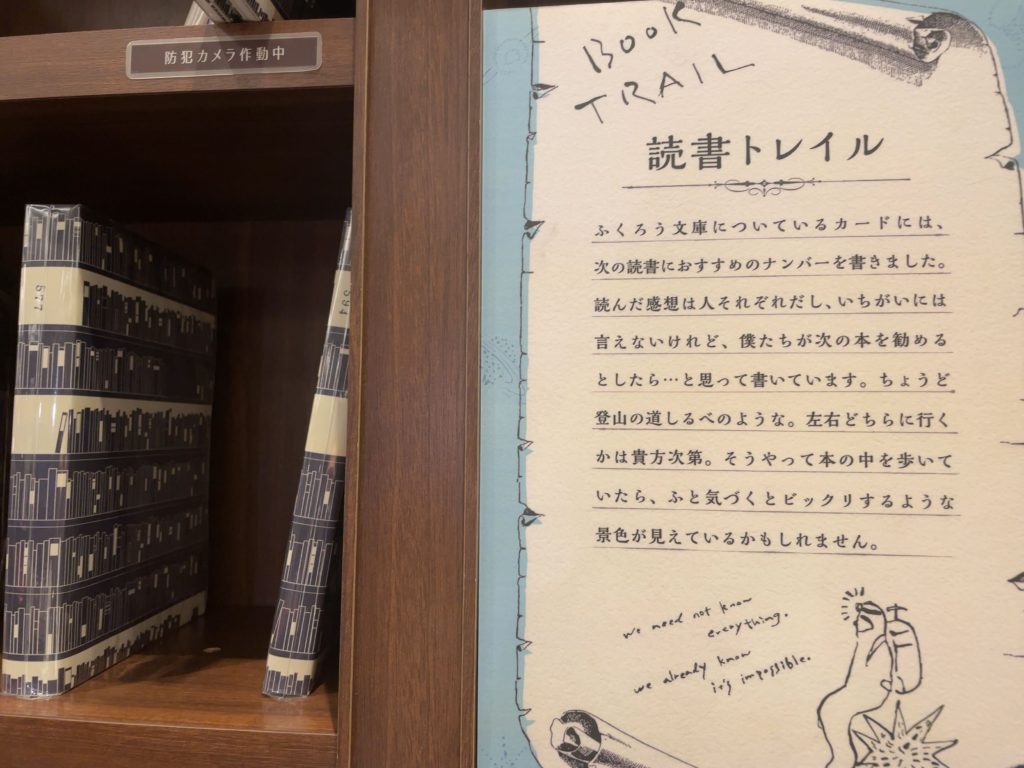 防犯カメラ作動中
577
594
BOOK
TRAIL
読書トレイル
ふくろう文庫についているカードには、
次の読書におすすめのナンバーを書きました。
読んだ感想は人それぞれだし、いちがいには
言えないけれど、僕たちが次の本を勧める
としたら…と思って書いています。ちょうど
登山の道しるべのような。左右どちらに行く
かは貴方次第。そうやって本の中を歩いて
いたら、ふと気づくとビックリするような
景色が見えているかもしれません。
we need not know
everything.
we already know
it's impossible.